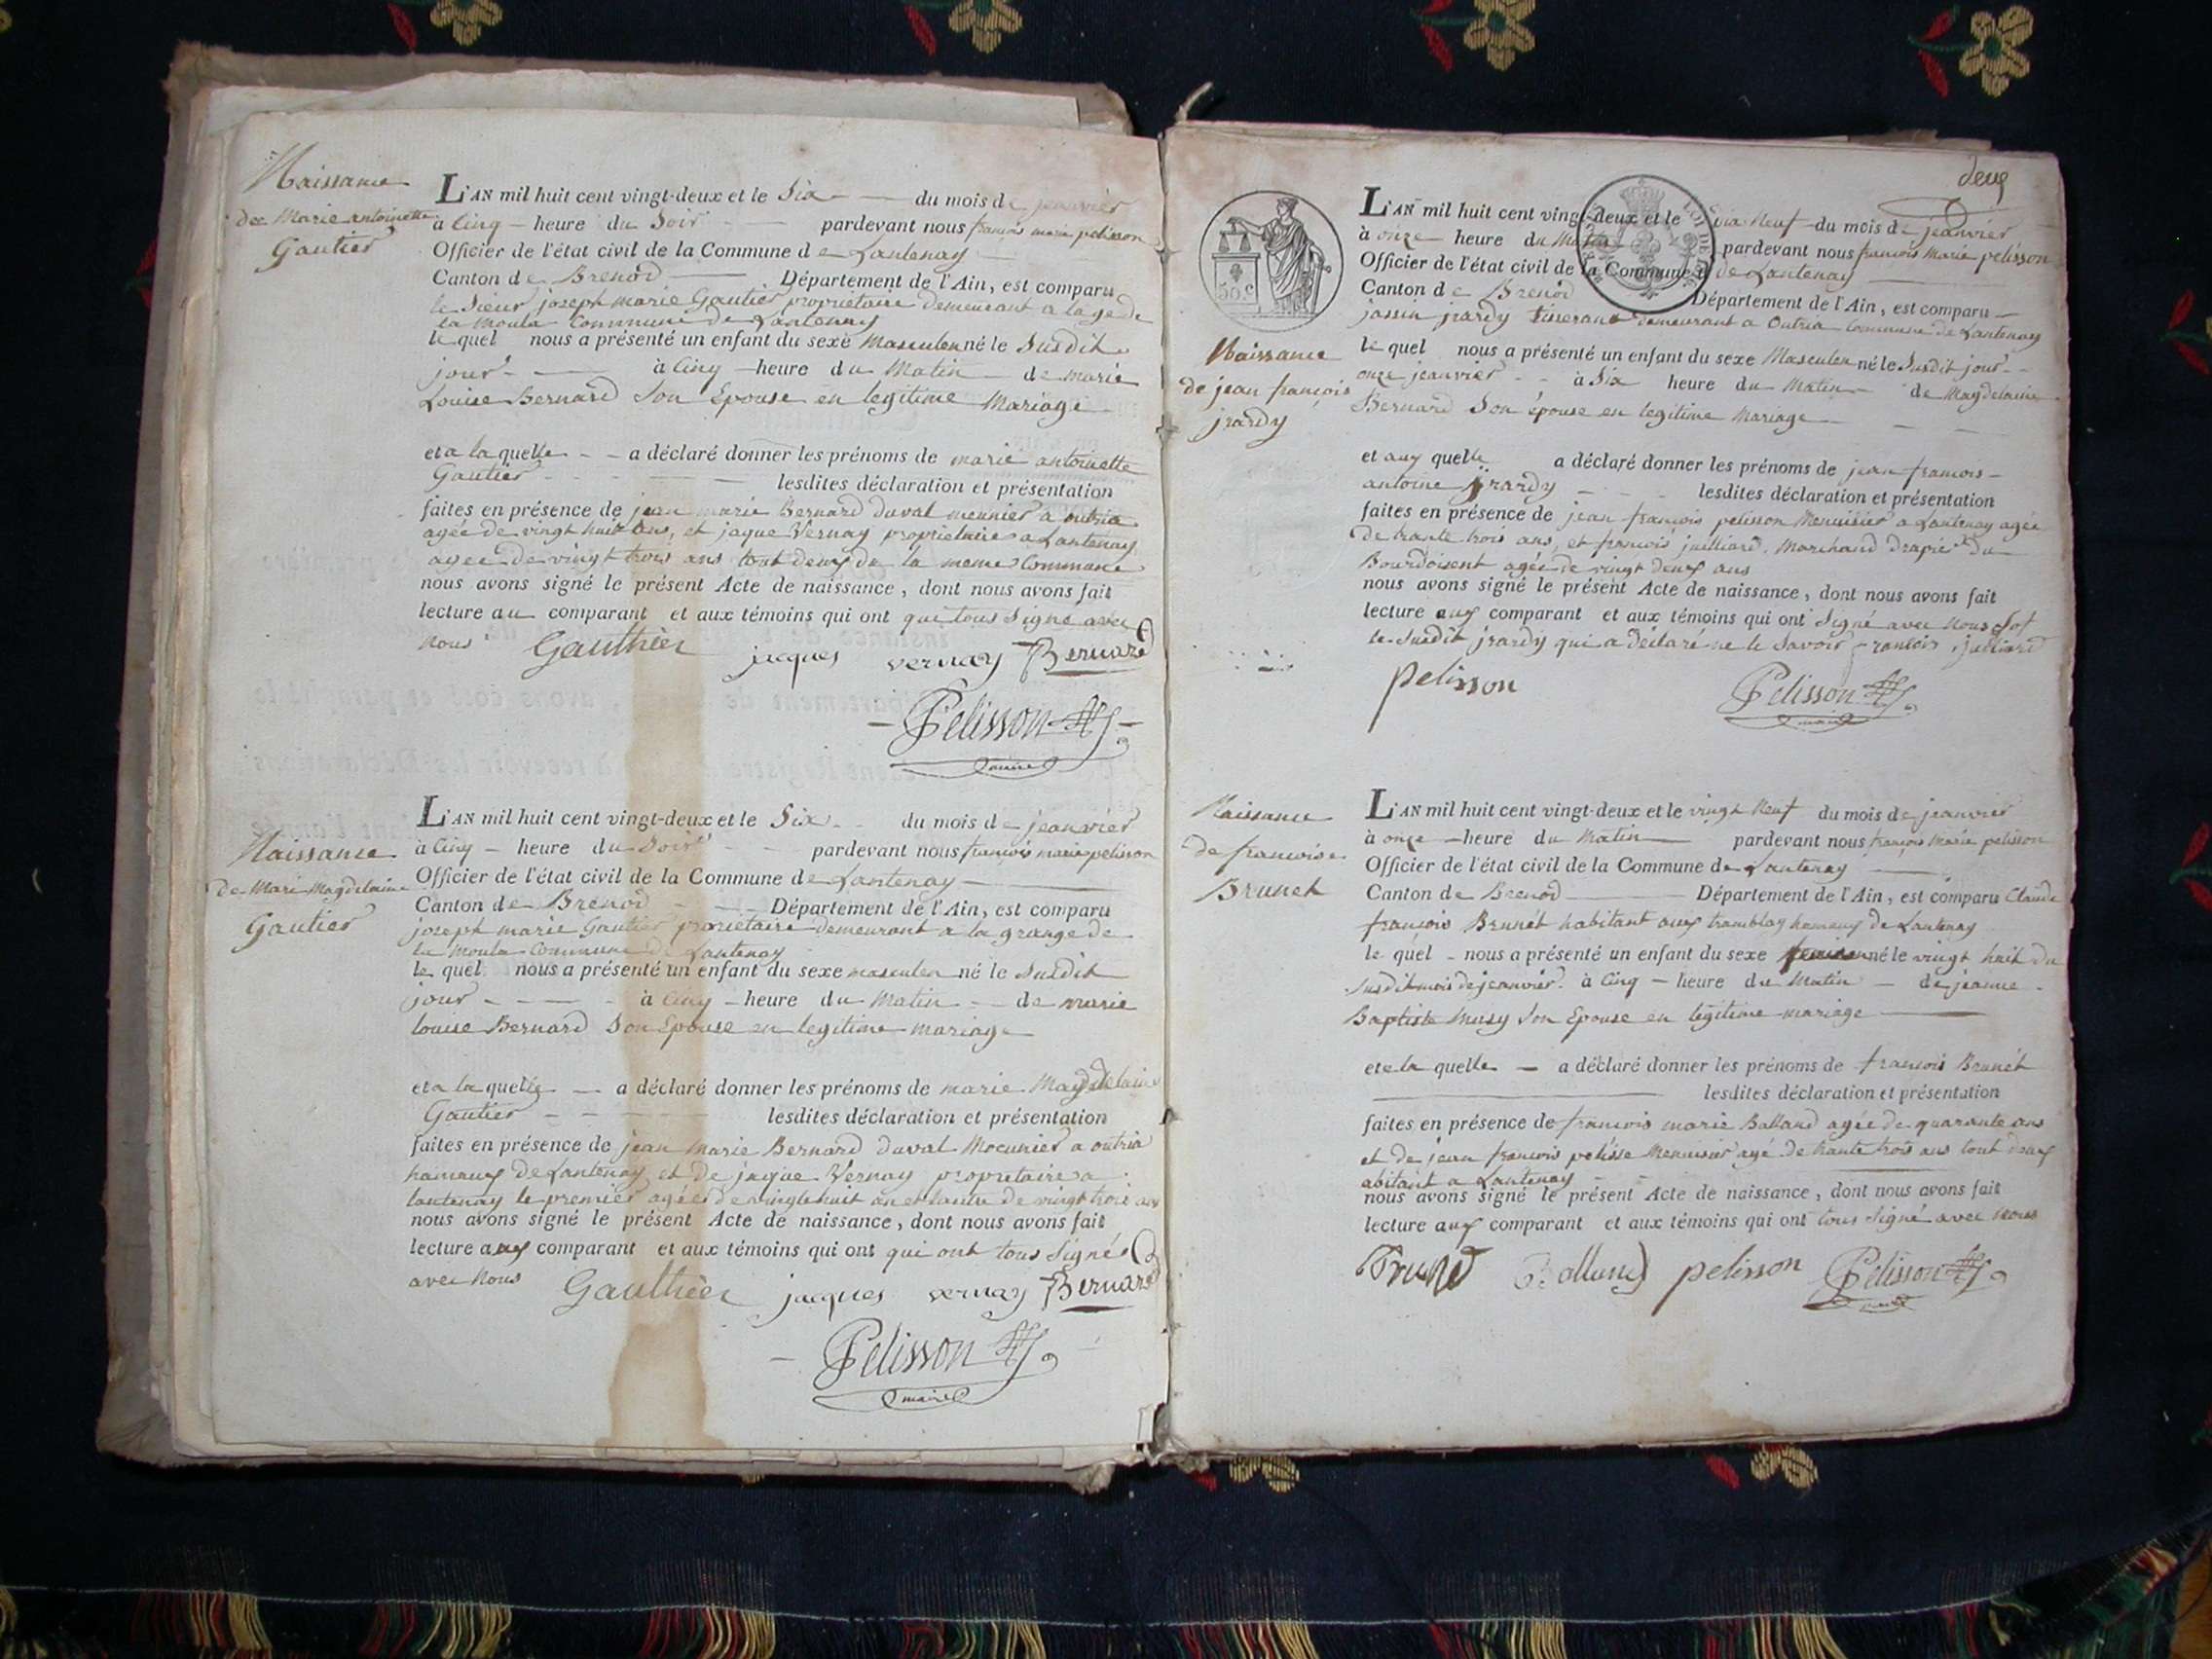 Naissance
dee Marie antoinette
Gautier
L'AN mil huit cent vingt-deux et le Six du mois de jeanvier
à Cinq heure du Soir pardevant nous françois marie pelisson
Officier de l'état civil de la Commune de Lantenay
Canton de Brenod Département de l'Ain, est comparu
le Sieur joseph marie Gautier proprietaire demeurant a la ge de
la Moula Commune de Lantenay
le quel nous a présenté un enfant du sexe Masculen né le Susdit
jour à Cinq heure du Matin de marie
Louise Bernard Son Epouse en legitime Mariage
et a la quelle a déclaré donner les prénoms de marie antoinette
Gautier lesdites déclaration et présentation
faites en présence de jean marie Bernard duval meunier a outria
agée de vingt huit ans, et jaque Vernay proprietaire a Lantenay
agee de vingt trois ans tout deux de la meme Commune
nous avons signé le présent Acte de naissance, dont nous avons fait
lecture au comparant et aux témoins qui ont qui tous Signé avec
nous Gauthier jacques vernay Bernard
Pelisson
maire
Naissance
de Mari Magdelaine
Gautier
L'AN mil huit cent vingt-deux et le Six du mois de jeanvier
à Cinq heure du Soir pardevant nous françois marie pelisson
Officier de l'état civil de la Commune de Lantenay
Canton de Brenod Département de l'Ain, est comparu
joseph marie Gautier proprietaire demeurant a la grange de
la Moula Commune de Lantenay
le quel nous a présenté un enfant du sexe masculen né le susdit
jour à Cinq heure du Matin de marie
louise Bernard Son Epouse en legitime mariage
et a la quelle a déclaré donner les prénoms de marie Magdelaine
Gautier lesdites déclaration et présentation
faites en présence de jean Marie Bernard duval Meunier a outria
hameaux de Lantenay et de jaque Vernay proprietaire a
lantenay le premier agée de vingt huit an et lautre de vingt trois ans
nous avons signé le présent Acte de naissance, dont nous avons fait
lecture aux comparant et aux témoins qui ont qui ont tous Signés
avec Nous Gauthier jacques vernay Bernard
Pelisson
maire
deux
50 C
LOI DE
L'AN mil huit cent vingt-deux et le dix Neuf du mois de jeanvier
à onze heure du Matin pardevant nous francois Marie pelisson
Officier de l'état civil de la Commune d de Lantenay
Canton de Brenod Département de l'Ain, est comparu
jrardy tisserant demeurant a Outria Commune de Lantenay
Naissance
de jean françois
jrardy
le quel nous a présenté un enfant du sexe Masculen né le Susdit jour
onze jeanvier à Six heure du Matin de Magdelaine
Bernard Son épouse en legitime Mariage
et aux quelle a déclaré donner les prénoms de jean francois
antoine jrardy lesdites déclaration et présentation
faites en présence de jean françois pelisson Menuisier a Lantenay agée
de trante trois ans, et francois juilliard Marchand drapié du
Bourdoisent agée de vingt deux ans
nous avons signé le présent Acte de naissance, dont nous avons fait
lecture aux comparant et aux témoins qui ont Signé avec Nous Sof
le Susdit jrardy qui a déclaré ne le Savoir francois juilliard
pelisson Pelisson
maire
Naissance
de francoise
Brunet
L'AN mil huit cent vingt-deux et le vingt Neuf du mois de jeanvier
à onze heure du Matin pardevant nous françois Marie pelisson
Officier de l'état civil de la Commune de Lantenay
Canton de Brenod Département de l'Ain, est comparu Claude
françois Brunét habitant aux tramblay hameux de Lantenay
le quel nous a présenté un enfant du sexe né le vingt huit du
Susdit mois de jeanvier à Cinq heure du Matin de jeanne
Baptiste Musy Son Epouse en legitime mariage
et a la quelle a déclaré donner les prénoms de francois Brunét
lesdites déclaration et présentation
faites en présence de francois marie Balland agée de quarante ans
et de jean francois pelisse Menuisier agé de trante trois ans tout deux
abitant a Lantenay
nous avons signé le présent Acte de naissance, dont nous avons fait
lecture aux comparant et aux témoins qui ont tous Signé avec Nous
Brunet Balland pelisson Pelisson
maire